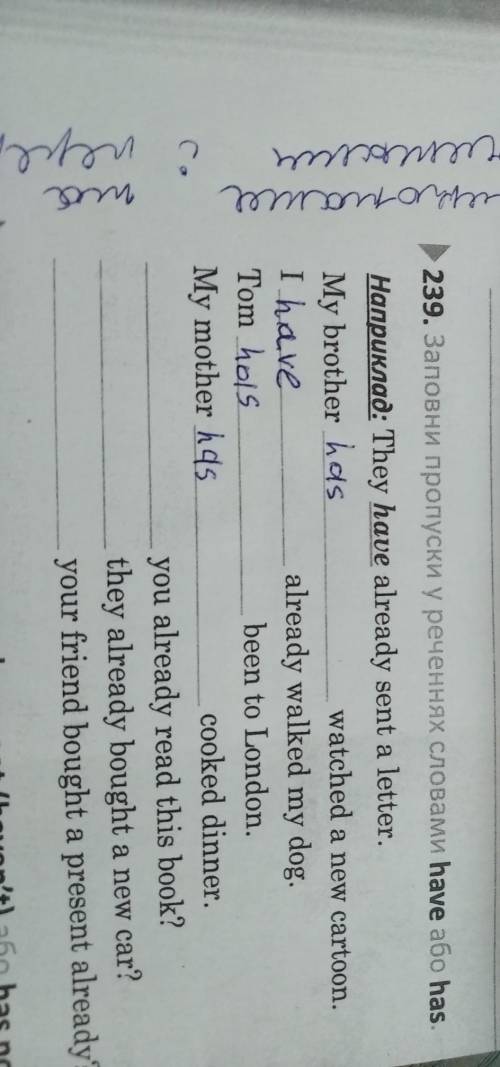 239. Заповни пропуски у реченнях словами have або has.
Наприклад: They have already sent a letter.
My brother has watched a new cartoon.
I have already walked my dog.
Tom has been to London.
My mother has cooked dinner.
you already read this book?
they already bought a new car?
your friend bought a present already?
(haven't) або has no